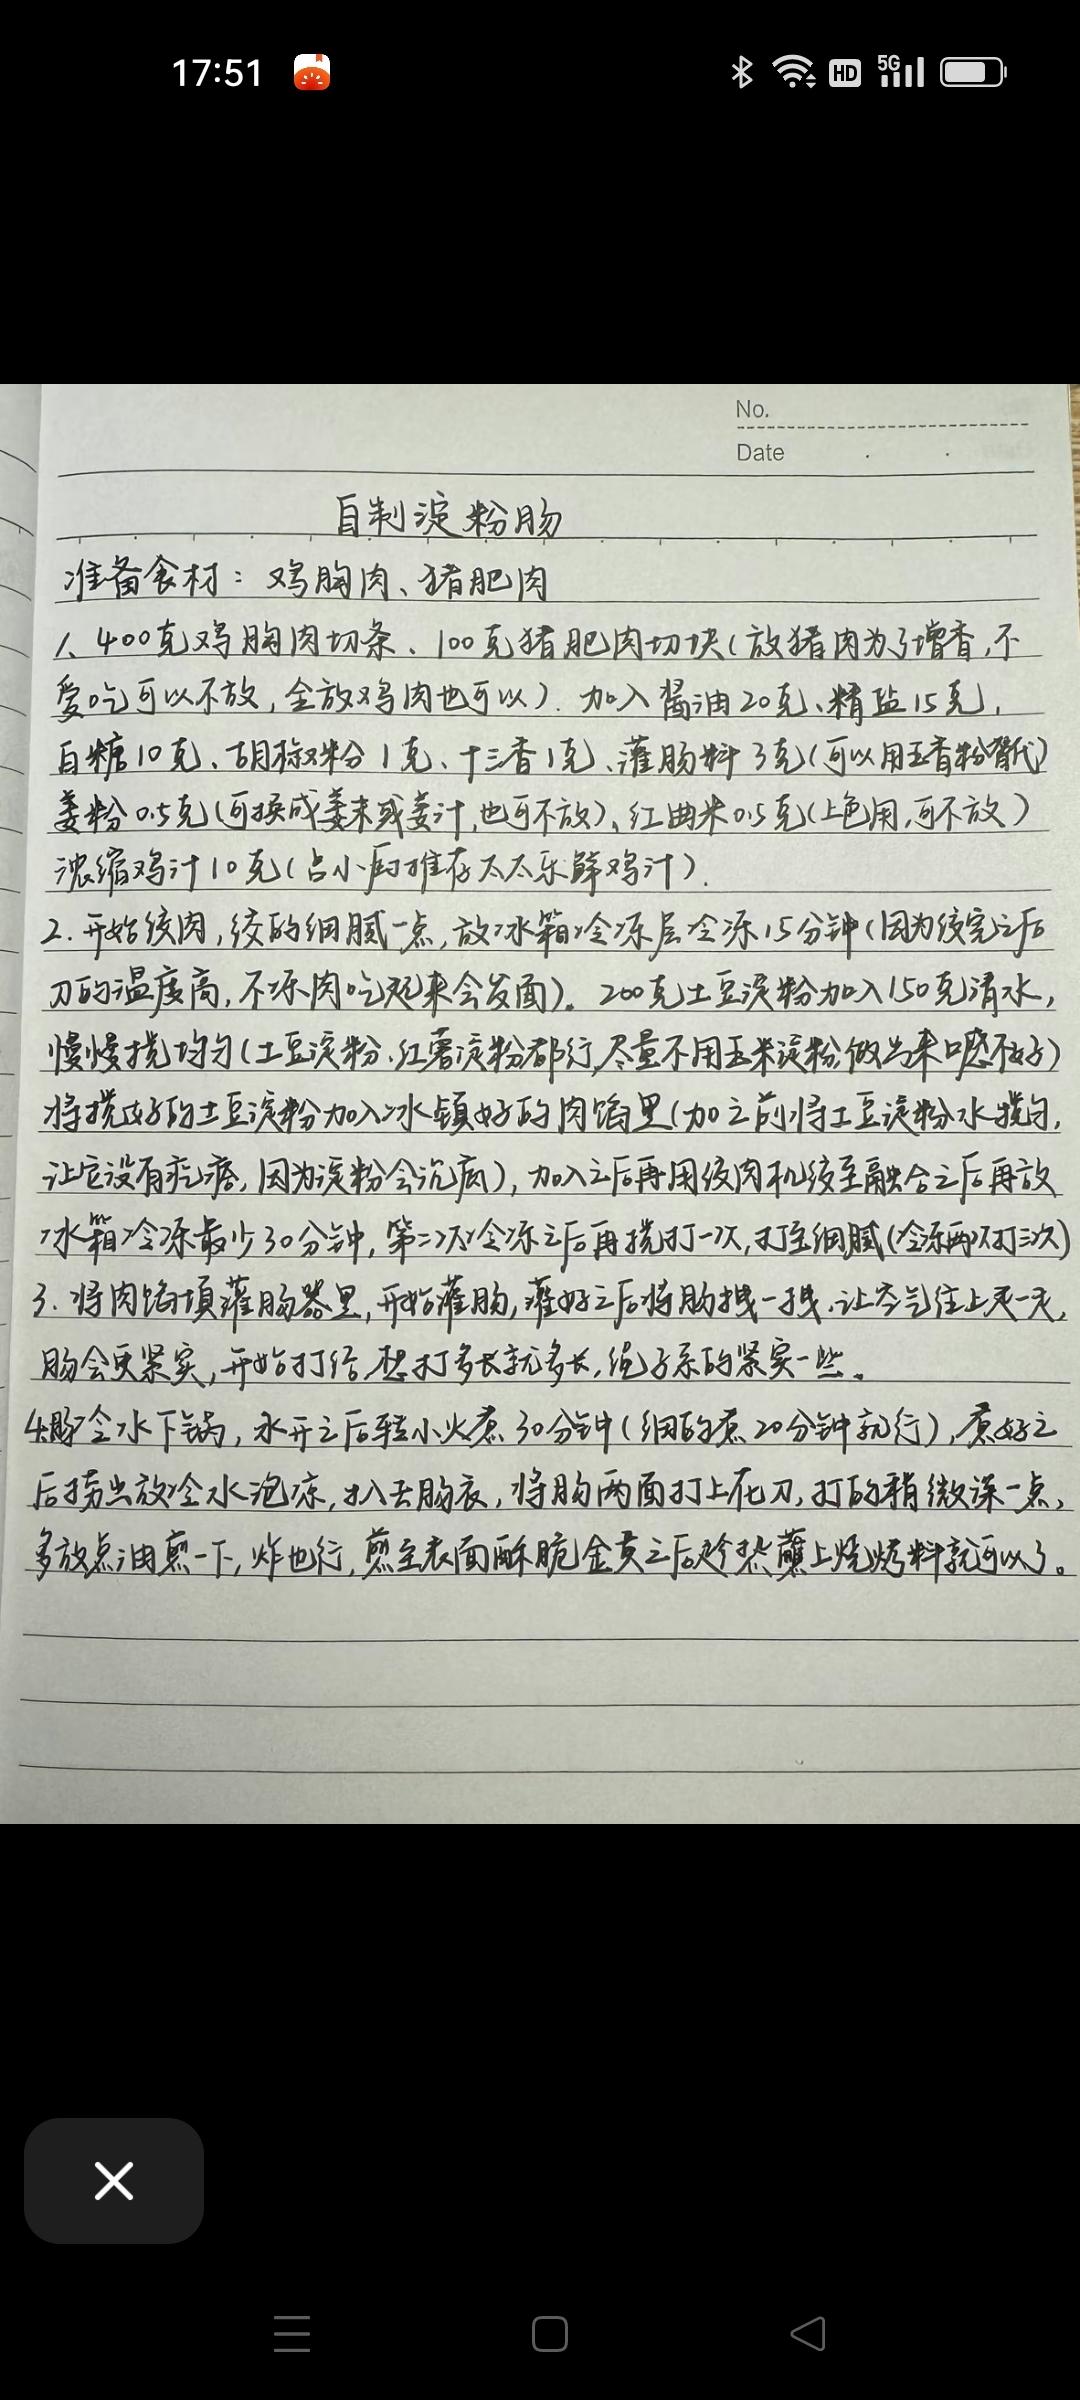 17:51
HD
5G
No.
Date
自制淀粉肠
准备食材：鸡胸肉、猪肥肉
1、400克鸡胸肉切条、100克猪肥肉切块(放猪肉为了增香,不
爱吃可以不放,全放鸡肉也可以). 加入酱油20克、精盐15克,
白糖10克、胡椒粉1克、十三香1克、灌肠料3克(可以用五香粉替代)
姜粉0.5克(可换成姜末或姜汁,也可不放)、红曲米0.5克(上色用,可不放)
浓缩鸡汁10克(占小厨推荐太太乐鲜鸡汁).
2.开始绞肉,绞的细腻一点,放冰箱冷冻层冷冻15分钟(因为绞完之后
刀的温度高,不冻肉吃起来会发面)。200克土豆淀粉加入150克清水,
慢慢搅均匀(土豆淀粉、红薯淀粉都行,尽量不用玉米淀粉,做出来口感不好)
将搅好的土豆淀粉加入冰镇好的肉馅里(加之前将土豆淀粉水搅匀,
让它没有疙瘩,因为淀粉会沉底),加入之后再用绞肉机绞至融合之后再放
冰箱冷冻最少30分钟,第二次冷冻之后再搅打一次,打至细腻(冷冻两次打三次)
3.将肉馅填灌肠器里,开始灌肠,灌好之后将肠拽一拽,让空气往上赶一赶,
肠会更紧实,开始打结,想打多长就多长,绳子系的紧实一些。
4.肠冷水下锅,水开之后转小火煮30分钟(细的煮20分钟就行),煮好之
后捞出放冷水泡凉,扒去肠衣,将肠两面打上花刀,打的稍微深一点,
多放点油煎一下,炸也行,煎至表面酥脆金黄之后趁热蘸上烧烤料就可以了。